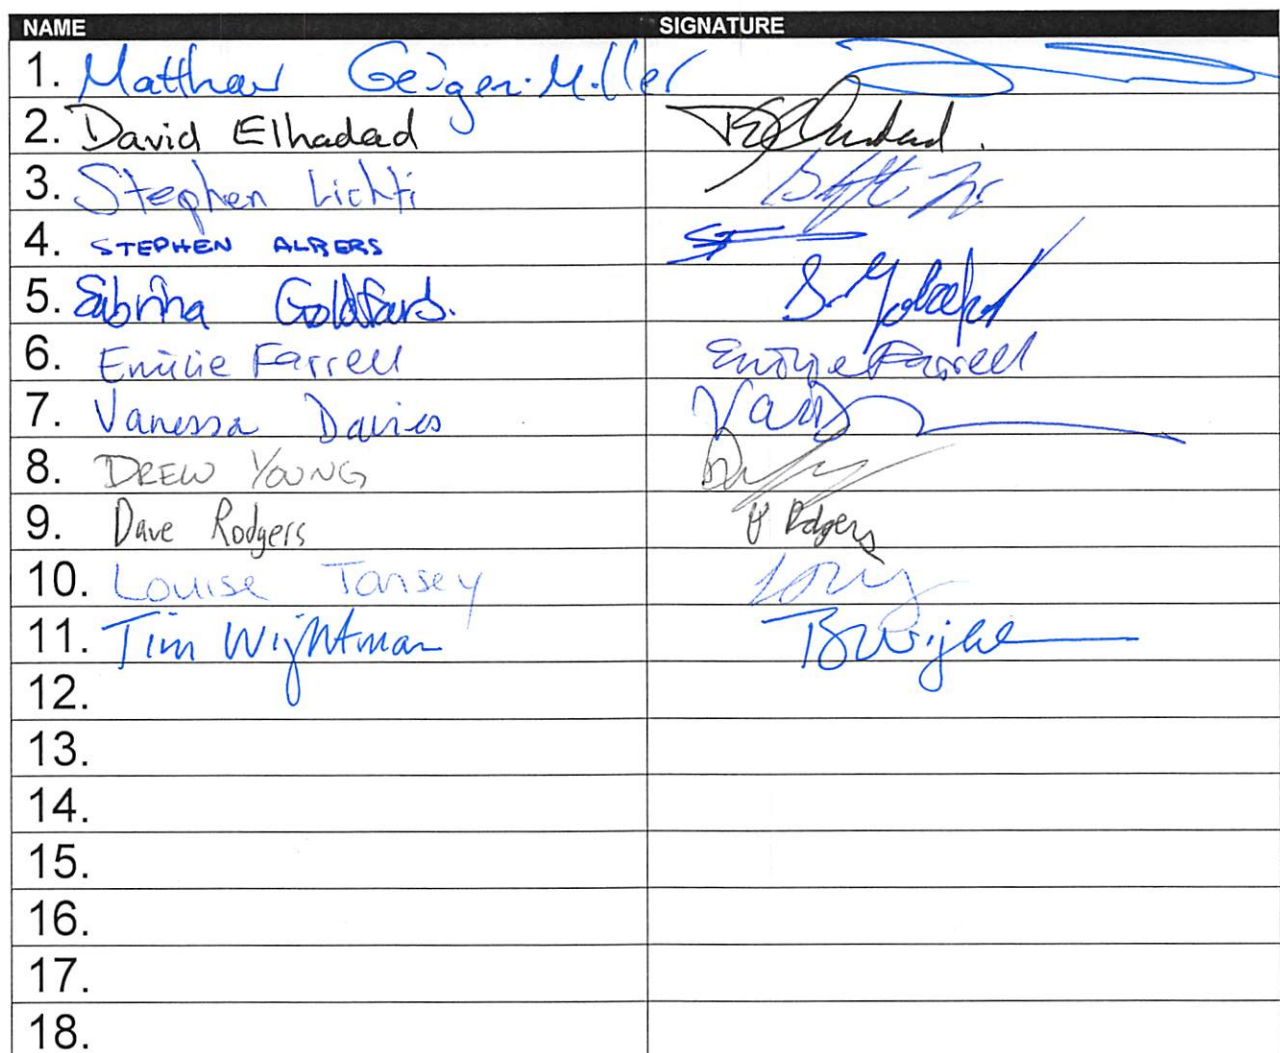 NAME SIGNATURE
1. Matthew Geiger-Miller
2. David Elhadad
3. Stephen Lichti
4. STEPHEN ALBERS
5. Sabrina Goldfarb.
6. Emilie Farrell Emilie Farrell
7. Vanessa Davies
8. DREW YOUNG
9. Dave Rodgers Rodgers
10. Louise Tansey
11. Tim Wightman
12.
13.
14.
15.
16.
17.
18.